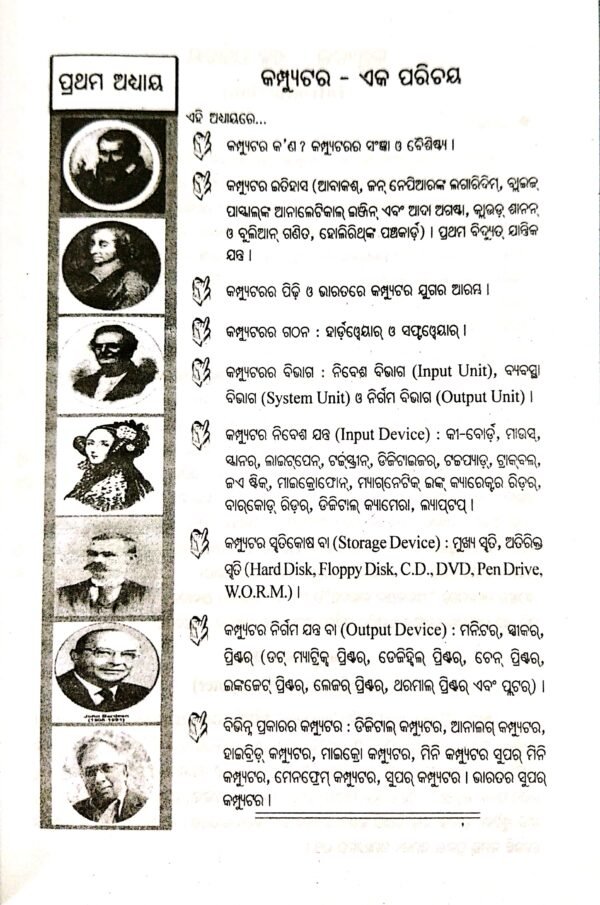 ପ୍ରଥମ ଅଧ୍ୟାୟ
କମ୍ପ୍ୟୁଟର - ଏକ ପରିଚୟ
ଏହି ଅଧ୍ୟାୟରେ...
କମ୍ପ୍ୟୁଟର କ'ଣ ? କମ୍ପ୍ୟୁଟରର ସଂଜ୍ଞା ଓ ବୈଶିଷ୍ଟ୍ୟ ।
କମ୍ପ୍ୟୁଟର ଇତିହାସ (ଆବାକଶ୍, ଜନ୍ ନେପିଆରଙ୍କ ଲଗାରିଦିମ୍, ବ୍ଲାଇଜ୍
ପାସ୍କାଲ୍‌ଙ୍କ ଆନାଲେଟିକାଲ୍ ଇଞ୍ଜିନ୍ ଏବଂ ଆଦା ଅଗଷ୍ଟା, କ୍ଲାଉଡ୍ ଶାନନ୍
ଓ ବୁଲିଆନ୍ ଗଣିତ, ହୋଲିରିଥ୍‌ଙ୍କ ପଞ୍ଚକାର୍ଡ଼) । ପ୍ରଥମ ବିଦ୍ୟୁତ୍ ଯାନ୍ତ୍ରିକ
ଯନ୍ତ୍ର ।
କମ୍ପ୍ୟୁଟରର ପିଢ଼ି ଓ ଭାରତରେ କମ୍ପ୍ୟୁଟର ଯୁଗର ଆରମ୍ଭ ।
କମ୍ପ୍ୟୁଟରର ଗଠନ : ହାର୍ଡ଼ୱେୟାର୍ ଓ ସଫ୍ଟୱେୟାର୍ ।
କମ୍ପ୍ୟୁଟରର ବିଭାଗ : ନିବେଶ ବିଭାଗ (Input Unit), ବ୍ୟବସ୍ଥା
ବିଭାଗ (System Unit) ଓ ନିର୍ଗମ ବିଭାଗ (Output Unit) ।
କମ୍ପ୍ୟୁଟର ନିବେଶ ଯନ୍ତ୍ର (Input Device) : କୀ-ବୋର୍ଡ଼, ମାଉସ୍,
ସ୍କାନର୍, ଲାଇଟ୍‌ପେନ୍, ଟଚ୍ସ୍କ୍ରୀନ୍, ଡିଜିଟାଇଜର୍, ଟଚ୍ପ୍ୟାଡ୍, ଟ୍ରାକ୍‌ବଲ୍,
ଜଏ ଷ୍ଟିକ୍, ମାଇକ୍ରୋଫୋନ୍, ମ୍ୟାଗ୍ନେଟିକ୍ ଇଙ୍କ୍ କ୍ୟାରେକ୍ଟର ରିଡ଼ର୍,
ବାର୍‌କୋଡ୍ ରିଡ଼ର୍, ଡିଜିଟାଲ୍ କ୍ୟାମେରା, ଲ୍ୟାପ୍‌ଟପ୍ ।
କମ୍ପ୍ୟୁଟର ସ୍ମୃତିକୋଷ ବା (Storage Device) : ମୁଖ୍ୟ ସ୍ମୃତି, ଅତିରିକ୍ତ
ସ୍ମୃତି (Hard Disk, Floppy Disk, C.D., DVD, Pen Drive,
W.O.R.M.) ।
କମ୍ପ୍ୟୁଟର ନିର୍ଗମ ଯନ୍ତ୍ର ବା (Output Device) : ମନିଟର୍, ସ୍ପୀକର୍,
ପ୍ରିଣ୍ଟର୍ (ଡଟ୍ ମ୍ୟାଟ୍ରିକ୍ସ ପ୍ରିଣ୍ଟର୍, ଡେଜିହ୍ୱିଲ୍ ପ୍ରିଣ୍ଟର୍, ଚେନ୍ ପ୍ରିଣ୍ଟର୍,
ଇଙ୍କଜେଟ୍ ପ୍ରିଣ୍ଟର୍, ଲେଜର୍ ପ୍ରିଣ୍ଟର୍, ଥରମାଲ୍ ପ୍ରିଣ୍ଟର୍ ଏବଂ ପ୍ଲଟର୍) ।
ବିଭିନ୍ନ ପ୍ରକାରର କମ୍ପ୍ୟୁଟର : ଡିଜିଟାଲ୍ କମ୍ପ୍ୟୁଟର, ଆନାଲଗ୍ କମ୍ପ୍ୟୁଟର,
ହାଇବ୍ରିଡ୍ କମ୍ପ୍ୟୁଟର, ମାଇକ୍ରୋ କମ୍ପ୍ୟୁଟର, ମିନି କମ୍ପ୍ୟୁଟର ସୁପର୍ ମିନି
କମ୍ପ୍ୟୁଟର, ମେନଫ୍ରେମ୍ କମ୍ପ୍ୟୁଟର, ସୁପର୍ କମ୍ପ୍ୟୁଟର । ଭାରତର ସୁପର୍
କମ୍ପ୍ୟୁଟର ।
John Bardeen
(1908-1991)